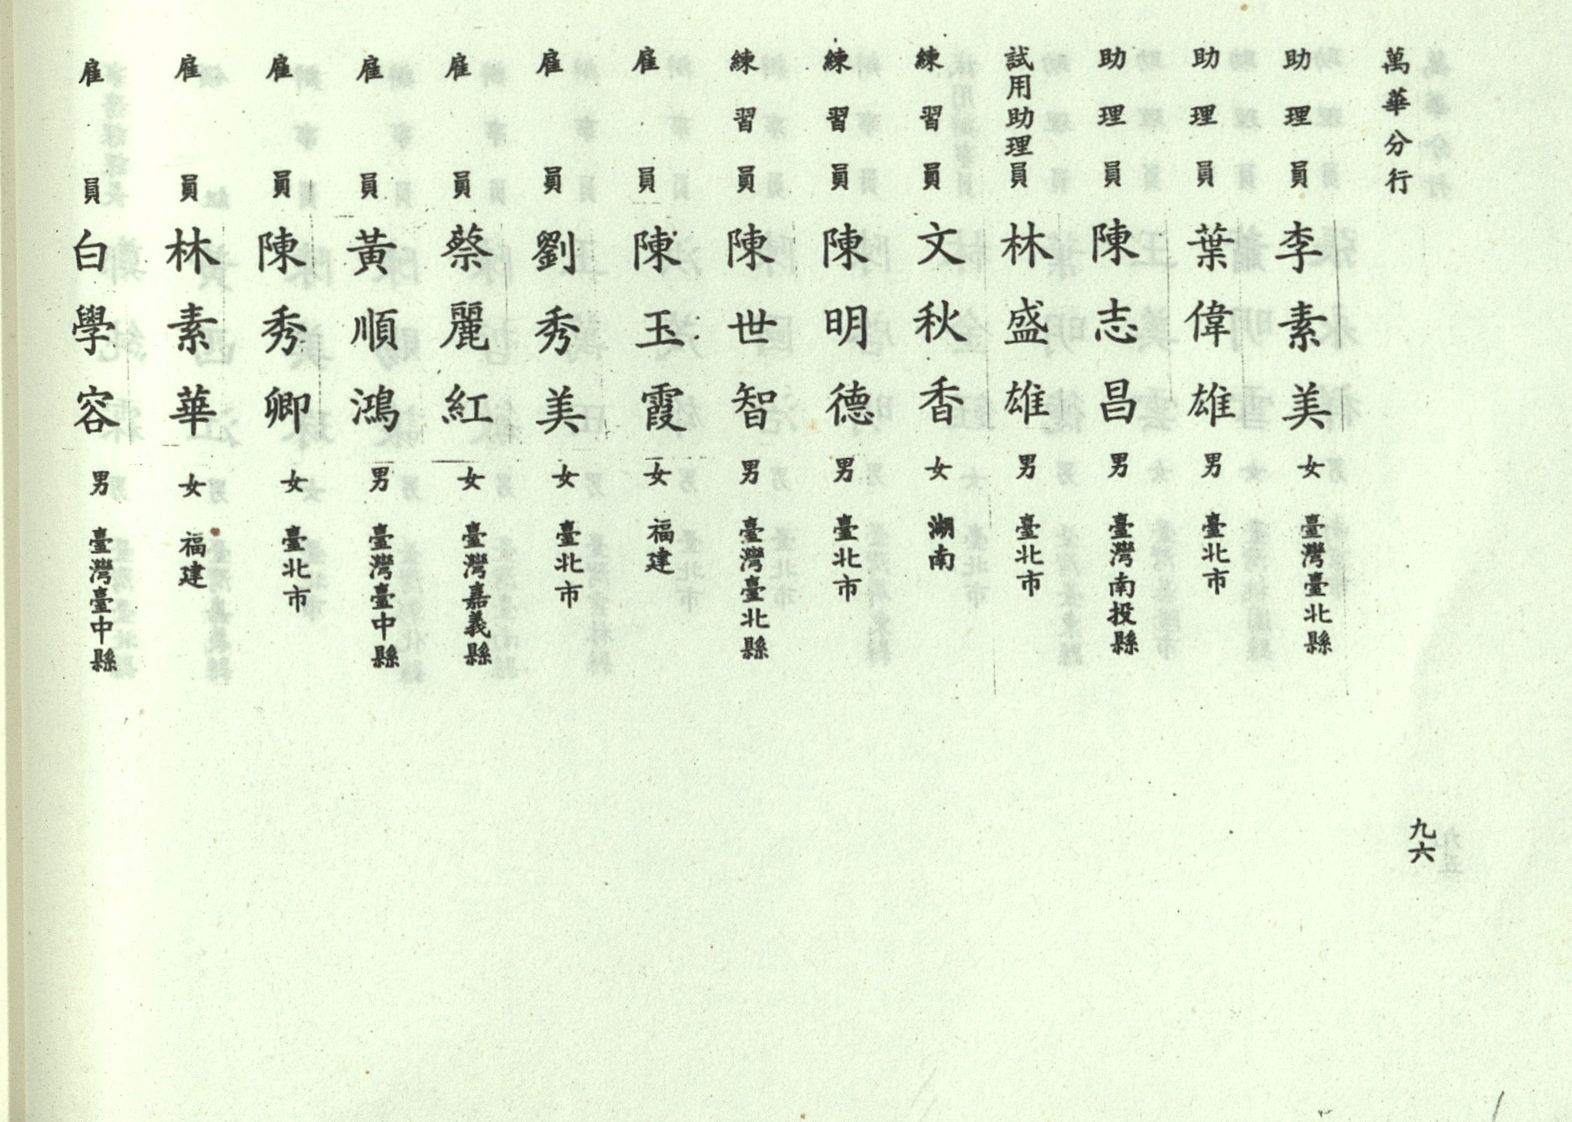 萬華分行
助理員 李素美 女 臺灣臺北縣
助理員 葉偉雄 男 臺北市
助理員 陳志昌 男 臺灣南投縣
試用助理員 林盛雄 男 臺北市
練習員 文秋香 女 湖南
練習員 陳明德 男 臺北市
練習員 陳世智 男 臺灣臺北縣
雇員 陳玉霞 女 福建
雇員 劉秀美 女 臺北市
雇員 蔡麗紅 女 臺灣嘉義縣
雇員 黃順鴻 男 臺灣臺中縣
雇員 陳秀卿 女 臺北市
雇員 林素華 女 福建
雇員 白學容 男 臺灣臺中縣
九六